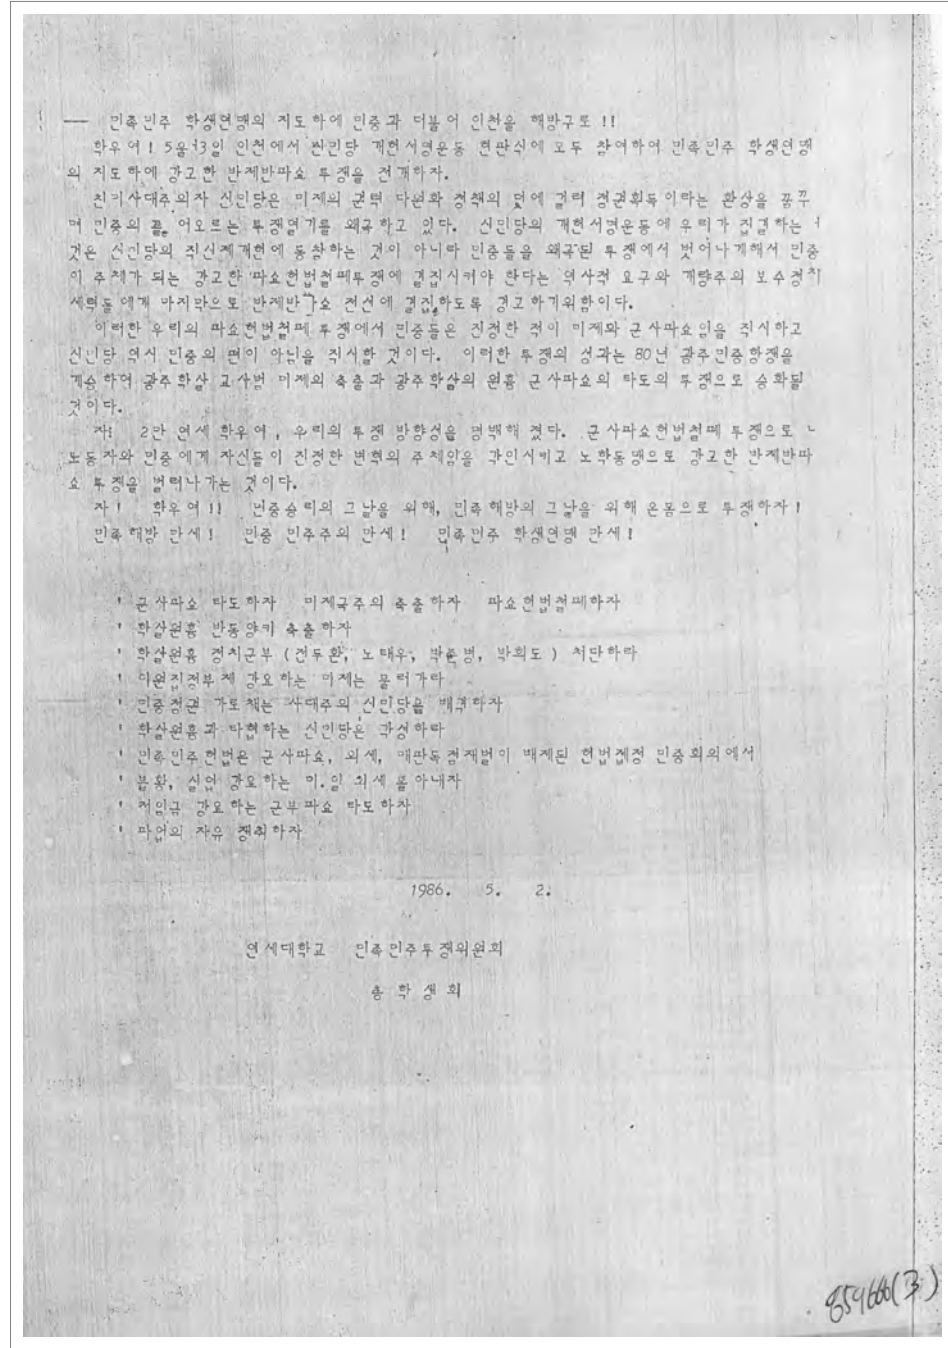 ── 민족민주 학생연맹의 지도하에 민중과 더불어 인천을 해방구로 !!
학우여 ! 5월 3일 인천에서 신민당 개헌서명운동 현판식에 모두 참여하여 민족민주 학생연맹
의 지도하에 강고한 반제반파쇼 투쟁을 전개하자.
친미사대주의자 신민당은 미제의 권력 다원화 정책의 덫에 걸려 정권획득이라는 환상을 꿈꾸
며 민중의 끓어오르는 투쟁열기를 왜곡하고 있다. 신민당의 개헌서명운동에 우리가 집결하는
것은 신민당의 직선제개헌에 동참하는 것이 아니라 민중들을 왜곡된 투쟁에서 벗어나게해서 민중
이 주체가 되는 강고한 파쇼헌법철폐투쟁에 결집시켜야 한다는 역사적 요구와 개량주의 보수정치
세력들에게 마지막으로 반제반파쇼 전선에 결집하도록 경고하기위함이다.
이러한 우리의 파쇼헌법철폐 투쟁에서 민중들은 진정한 적이 미제와 군사파쇼임을 직시하고
신민당 역시 민중의 편이 아님을 직시할 것이다. 이러한 투쟁의 성과는 80년 광주민중항쟁을
계승하여 광주학살 교사범 미제의 축출과 광주학살의 원흉 군사파쇼의 타도의 투쟁으로 승화될
것이다.
자! 2만 연세 학우여, 우리의 투쟁 방향성을 명백해 졌다. 군사파쇼헌법철폐 투쟁으로
노동자와 민중에게 자신들이 진정한 변혁의 주체임을 각인시키고 노학동맹으로 강고한 반제반파
쇼 투쟁을 벌려나가는 것이다.
자 ! 학우여 !! 민중승리의 그날을 위해, 민족해방의 그날을 위해 온몸으로 투쟁하자 !
민족해방 만세 ! 민중 민주주의 만세 ! 민족민주 학생연맹 만세 !
' 군사파쇼 타도하자 미제국주의 축출하자 파쇼헌법철폐하자
' 학살원흉 반동양키 축출하자
' 학살원흉 정치군부 (전두환, 노태우, 박준병, 박희도) 처단하라
' 이원집정부제 강요하는 미제는 물러가라
' 민중정권 가로채는 사대주의 신민당을 배격하자
' 학살원흉과 타협하는 신민당은 각성하라
' 민족민주헌법은 군사파쇼, 외세, 매판독점재벌이 배제된 헌법제정 민중회의에서
' 불황, 실업 강요하는 미.일 외세 몰아내자
' 저임금 강요하는 군부파쇼 타도하자
' 파업의 자유 쟁취하자
1986. 5. 2.
연세대학교 민족민주투쟁위원회
총학생회
859666(3)